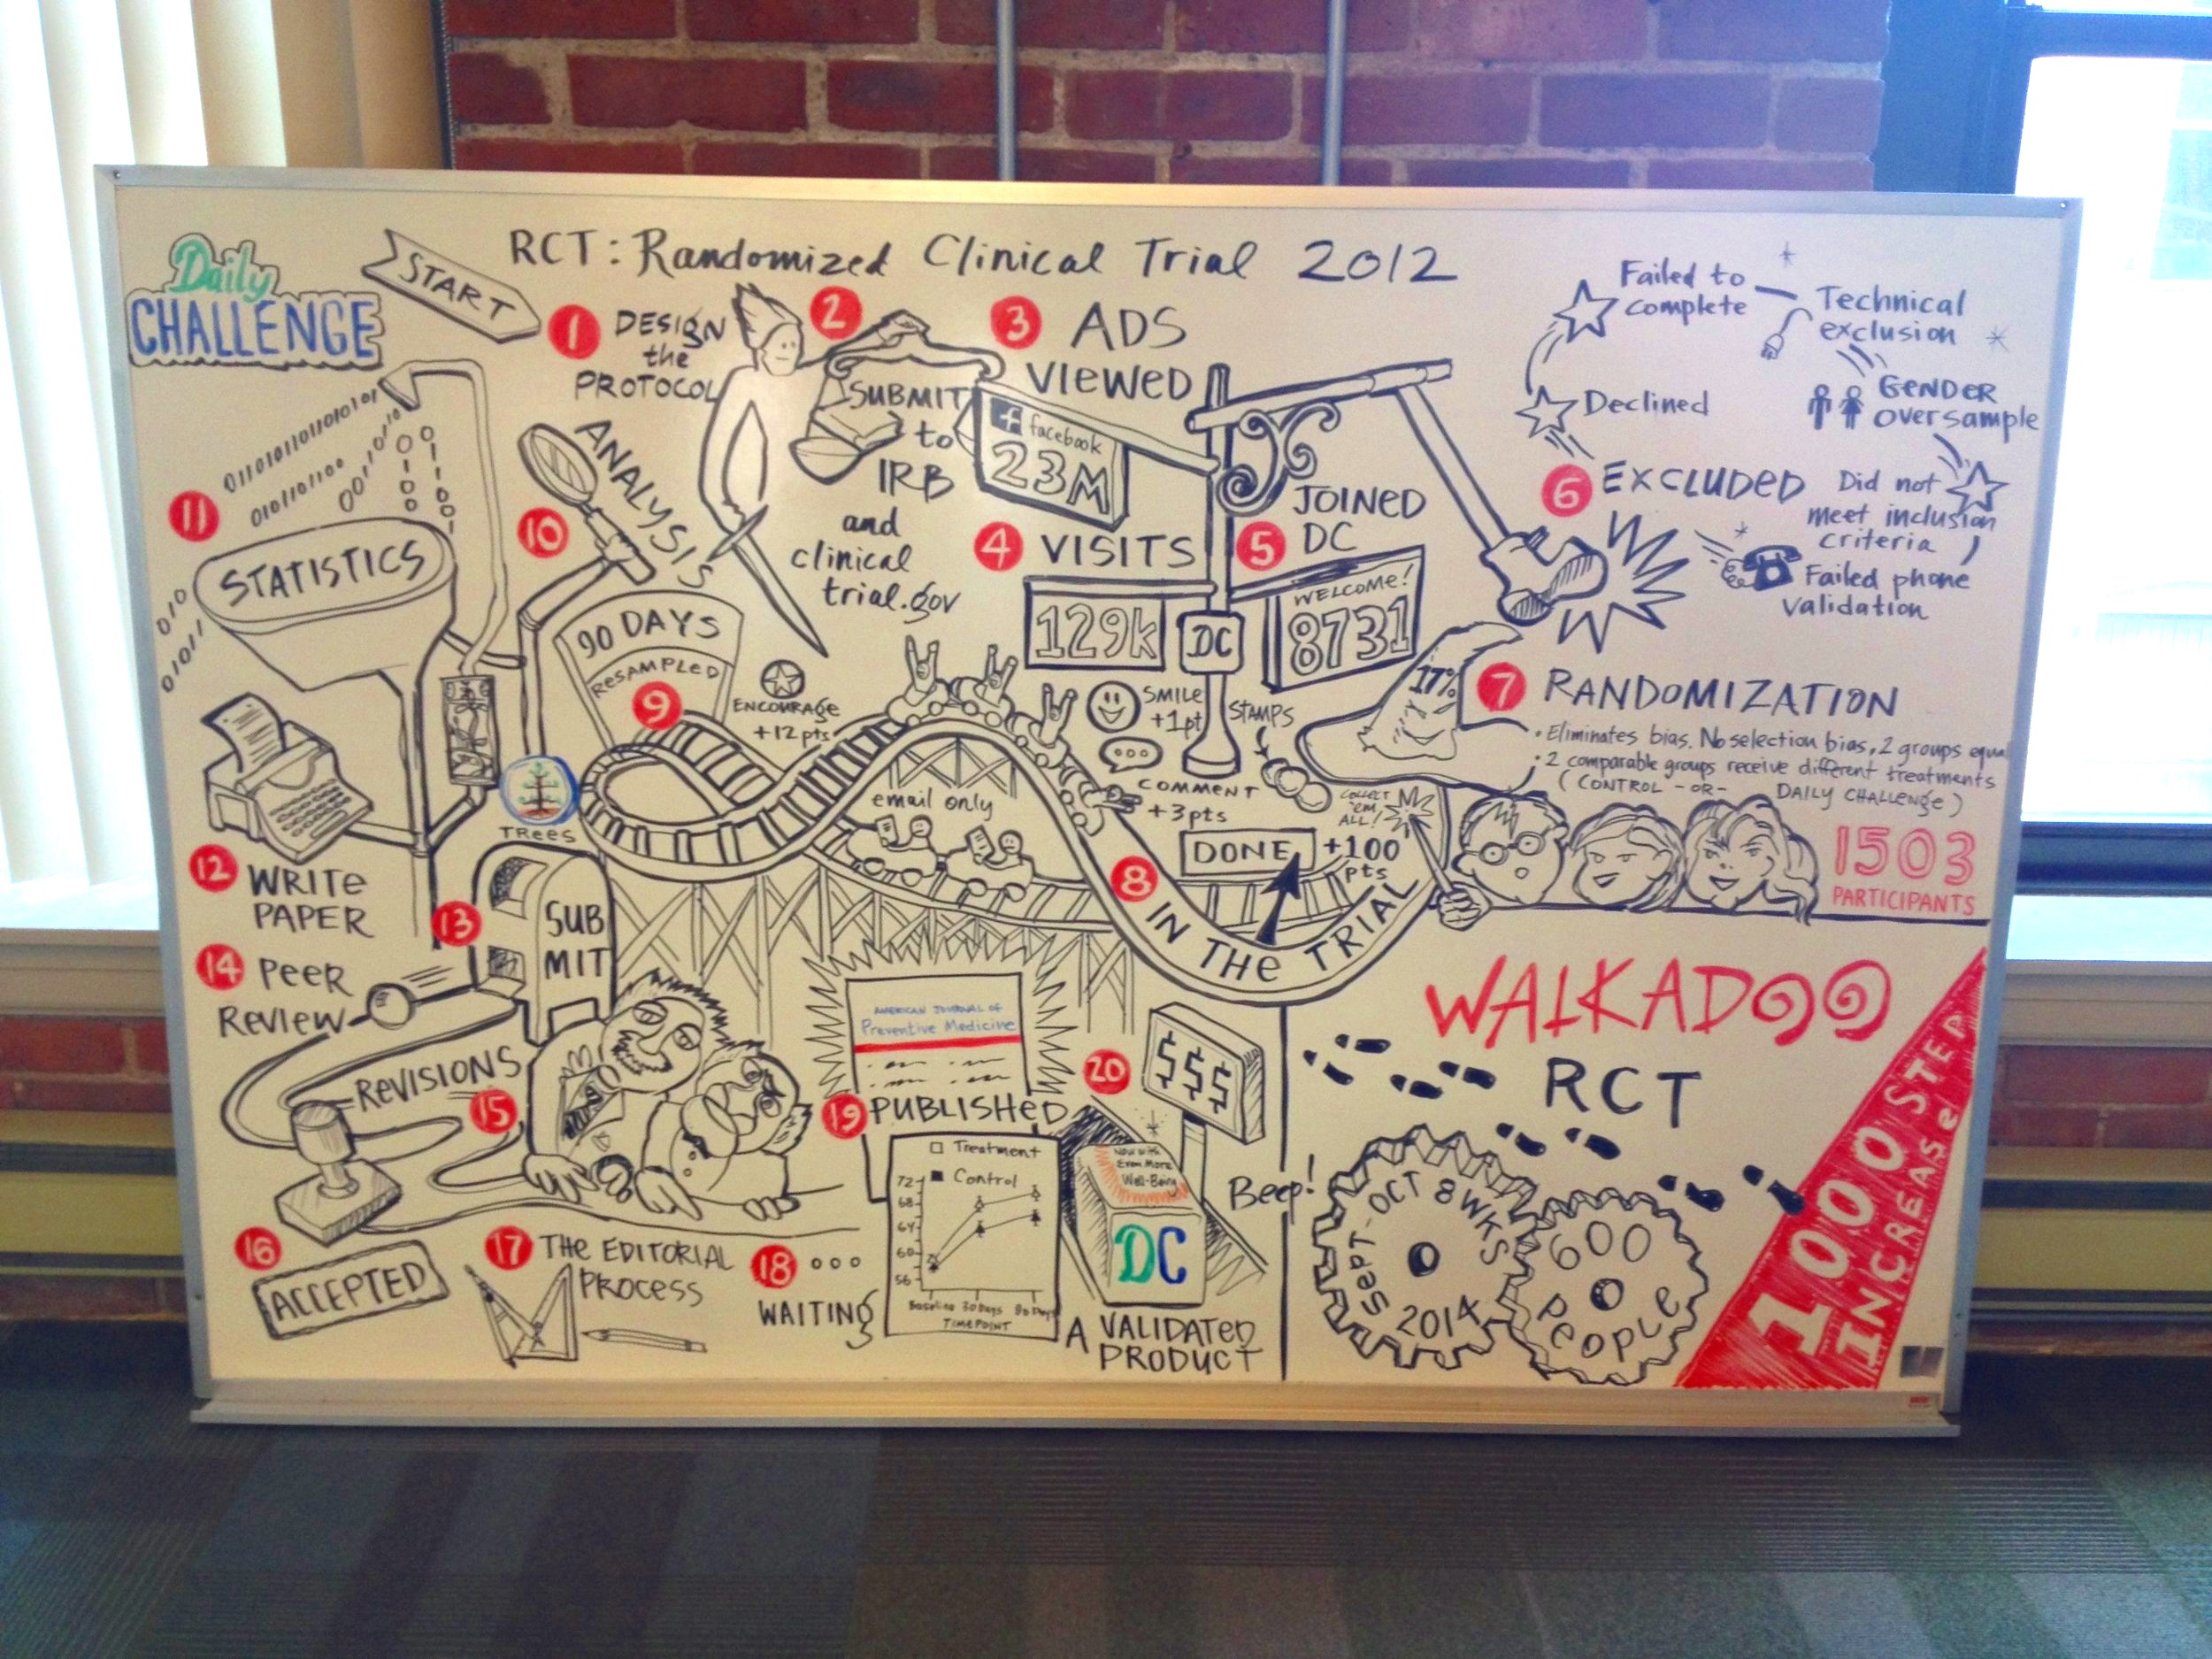 Daily
CHALLENGE
START
RCT: Randomized Clinical Trial 2012
1 DESIGN
the
PROTOCOL
2
SUBMIT
to
IRB
and
clinical
trial.gov
3 ADS
VIEWED
f facebook
23M
4 VISITS
129k
DC
5 JOINED
DC
WELCOME!
8731
6 EXCLUDED
Declined
Failed to
complete
Technical
exclusion
GENDER
oversample
Did not
meet inclusion
criteria
Failed phone
validation
7 RANDOMIZATION
17%
• Eliminates bias. No selection bias, 2 groups equal
• 2 comparable groups receive different treatments
(CONTROL -OR- DAILY CHALLENGE)
1503
PARTICIPANTS
8 IN THE TRIAL
SMILE
+1pt
STAMPS
COMMENT
+3pts
COLLECT
'EM
ALL!
DONE +100
pts
email only
ENCOURAGE
+12pts
9
90 DAYS
RESAMPLED
10 ANALYSIS
TREES
11
STATISTICS
0110101101101010101
12 WRITE
PAPER
13 SUB
MIT
14 PEER
REVIEW
REVISIONS
15
16
ACCEPTED
17 THE EDITORIAL
PROCESS
18 ...
WAITING
AMERICAN JOURNAL OF
Preventive Medicine
19 PUBLISHED
Treatment
Control
72
68
64
60
56
Baseline 30 Days 90 Days
TIMEPOINT
20
$$$
Now with
Even More
Well-Being
DC
Beep!
A VALIDATED
PRODUCT
WALKADOO
RCT
SEPT-OCT 8WKS
2014
600
PEOPLE
1000 STEP
INCREASE